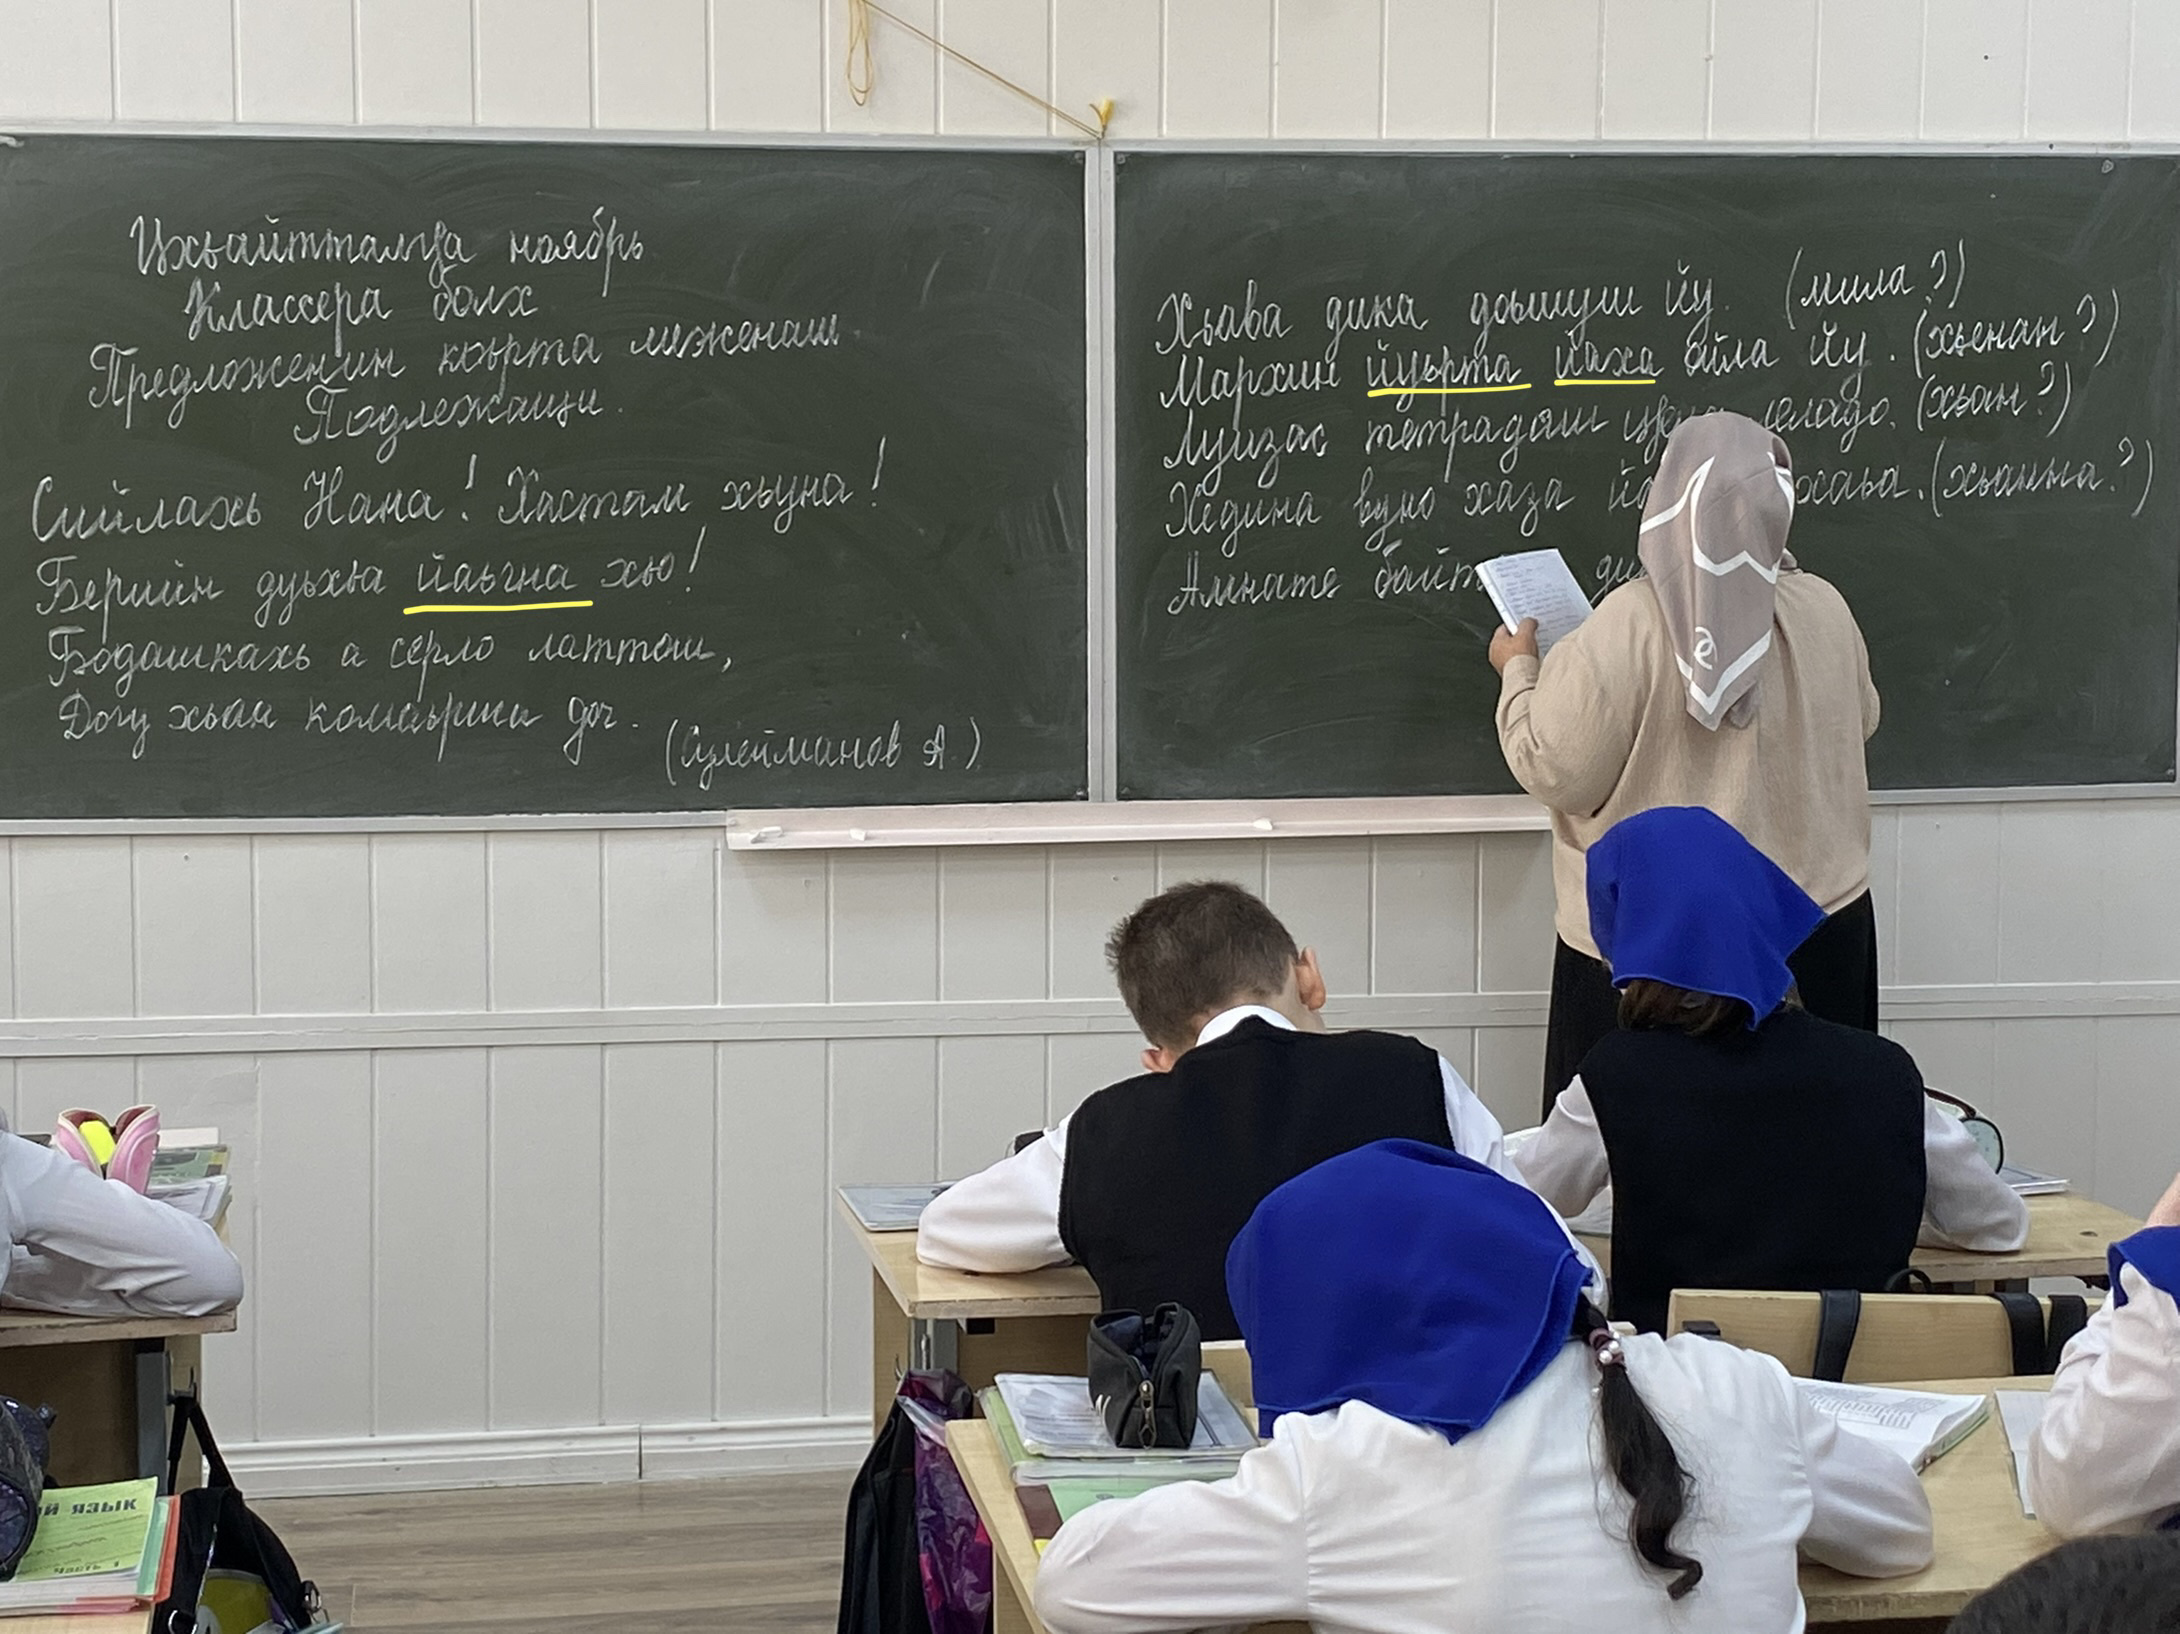 Цхьайтталгӏа ноябрь
Классера болх
Предложенин коьрта меженаш.
Подлежащи.
Сийлахь Нана! Хастам хьуна!
Берийн дуьхьа йаьгна хьо!
Бодашкахь а серло латтош,
Догу хьан комаьрши дог.
(Сулейманов А.)
Хьава дика доьшуш йу. (мила?)
Мархин йуьрта йаха ойла йу. (хьенан?)
Луизас тетрадаш (хьан?)
Хедина вуно хаза (хьанна?)
Аминате
й язык
часть 1